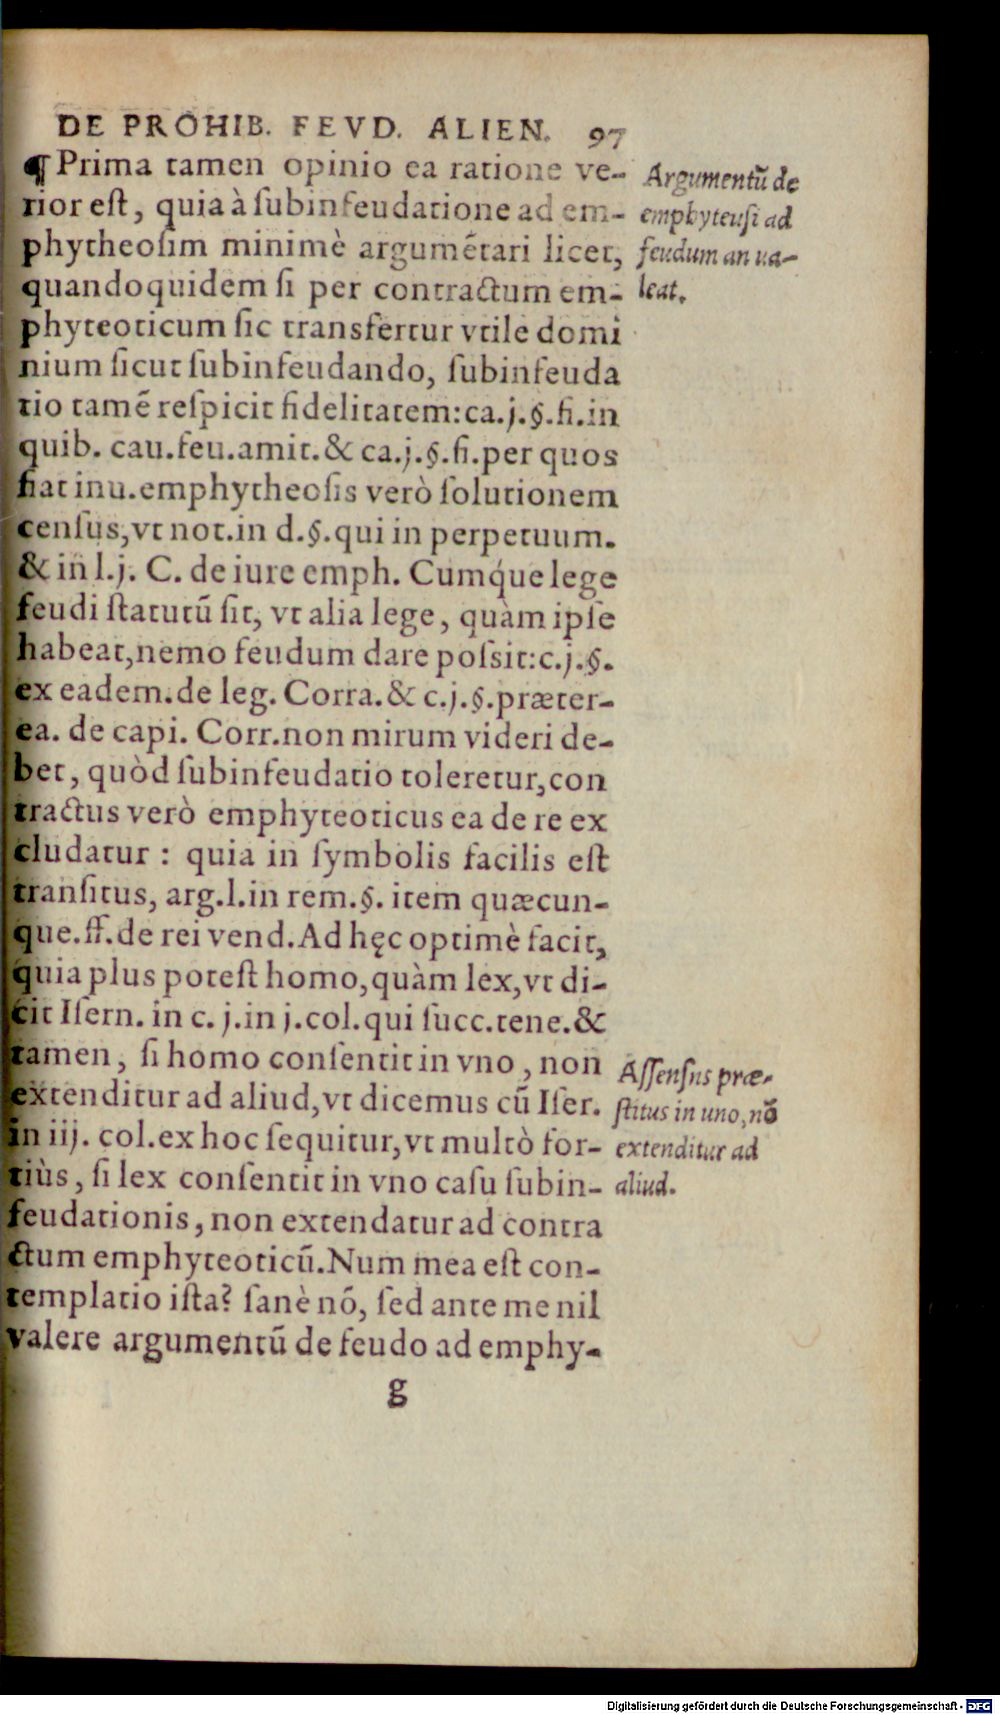 DE PROHIB. FEVD. ALIEN. 97
¶ Prima tamen opinio ea ratione ve-
rior eſt, quia à ſubinfeudatione ad em-
phytheoſim minimè argumẽtari licet,
quandoquidem ſi per contractum em-
phyteoticum ſic transfertur vtile domi
nium ſicut ſubinfeudando, ſubinfeuda
tio tamẽ reſpicit fidelitatem: ca. j. §. fi. in
quib. cau. feu. amit. & ca. j. §. fi. per quos
fiat inu. emphytheoſis verò ſolutionem
cenſus, vt not. in d. §. qui in perpetuum.
& in l. j. C. de iure emph. Cumq́ue lege
feudi ſtatutũ ſit, vt alia lege, quàm ipſe
habeat, nemo feudum dare poſsit: c. j. §.
ex eadem. de leg. Corra. & c. j. §. præter-
ea. de capi. Corr. non mirum videri de-
bet, quòd ſubinfeudatio toleretur, con
tractus verò emphyteoticus ea de re ex
cludatur : quia in ſymbolis facilis eſt
tranſitus, arg. l. in rem. §. item quæcun-
que. ff. de rei vend. Ad hęc optimè facit,
quia plus poteſt homo, quàm lex, vt di-
cit Iſern. in c. j. in j. col. qui ſucc. tene. &
tamen, ſi homo conſentit in vno, non
extenditur ad aliud, vt dicemus cũ Iſer.
in iij. col. ex hoc ſequitur, vt multò for-
tiùs, ſi lex conſentit in vno caſu ſubin-
feudationis, non extendatur ad contra
ctum emphyteoticũ. Num mea eſt con-
templatio iſta? ſanè nõ, ſed ante me nil
valere argumentũ de feudo ad emphy-
g
Argumentũ de
emphyteuſi ad
feudum an ua-
leat.
Aſſenſus præ-
ſtitus in uno, nõ
extenditur ad
aliud.
Digitalisierung gefördert durch die Deutsche Forschungsgemeinschaft - DFG